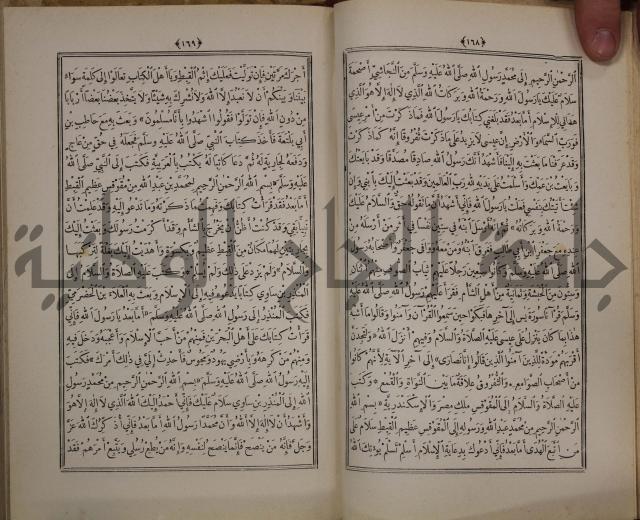 ﴿١٦٨﴾
الرَّحْمٰنِ الرَّحِيمِ إِلَى مُحَمَّدٍ رَسُولِ اللهِ صَلَّى اللهُ عَلَيْهِ وَسَلَّمَ مِنَ النَّجَاشِيِّ أَصْحَمَةَ
سَلَامٌ عَلَيْكَ يَا رَسُولَ اللهِ وَرَحْمَةُ اللهِ وَبَرَكَاتُ اللهِ الَّذِي لَا إِلٰهَ إِلَّا هُوَ الَّذِي
هَدَانِي لِلْإِسْلَامِ أَمَّا بَعْدُ فَقَدْ بَلَغَنِي كِتَابُكَ يَا رَسُولَ اللهِ فَمَا ذَكَرْتَ مِنْ أَمْرِ عِيسَى
فَوَرَبِّ السَّمَاءِ وَالْأَرْضِ إِنَّ عِيسَى لَا يَزِيدُ عَلَى مَا ذَكَرْتَ ثُفْرُوقًا إِنَّهُ كَمَا ذَكَرْتَ
وَقَدْ عَرَفْنَا مَا بَعَثْتَ بِهِ إِلَيْنَا فَأَشْهَدُ أَنَّكَ رَسُولُ اللهِ صَادِقًا مُصَدَّقًا وَقَدْ بَايَعْتُكَ
وَبَايَعْتُ ابْنَ عَمِّكَ وَأَسْلَمْتُ عَلَى يَدَيْهِ لِلهِ رَبِّ الْعَالَمِينَ وَقَدْ بَعَثْتُ إِلَيْكَ بِابْنِي وَإِنْ
شِئْتَ أَتَيْتُكَ بِنَفْسِي فَعَلْتُ يَا رَسُولَ اللهِ فَإِنِّي أَشْهَدُ أَنَّ مَا تَقُولُهُ حَقٌّ وَالسَّلَامُ عَلَيْكَ
وَرَحْمَةُ اللهِ وَبَرَكَاتُهُ
اللهِ صَلَّى اللهُ عَلَيْهِ وَسَلَّمَ وَكَانُوا سَبْعِينَ رَجُلًا عَلَيْهِمْ ثِيَابُ الصُّوفِ مِنْهُمُ اثْنَانِ
وَسِتُّونَ مِنَ الْحَبَشَةِ وَثَمَانِيَةٌ مِنْ أَهْلِ الشَّأْمِ فَقَرَأَ عَلَيْهِمْ رَسُولُ اللهِ صَلَّى اللهُ عَلَيْهِ
وَسَلَّمَ قُرْآنًا سُورَةَ يس إِلَى آخِرِهَا فَبَكَوْا حِينَ سَمِعُوا الْقُرْآنَ وَآمَنُوا وَقَالُوا مَا أَشْبَهَ
هٰذَا بِمَا كَانَ يَنْزِلُ عَلَى عِيسَى عَلَيْهِ الصَّلَاةُ وَالسَّلَامُ وَفِيهِمْ أَنْزَلَ اللهُ ﴿وَلَتَجِدَنَّ
أَقْرَبَهُمْ مَوَدَّةً لِلَّذِينَ آمَنُوا الَّذِينَ قَالُوا إِنَّا نَصَارَى﴾ إِلَى آخِرِ الْآيَةِ لِأَنَّهُمْ كَانُوا
مِنْ أَصْحَابِ الصَّوَامِعِ. وَالثُّفْرُوقُ عِلَاقَةُ مَا بَيْنَ النَّوَاةِ وَالْقَمْعِ. وَكَتَبَ
عَلَيْهِ الصَّلَاةُ وَالسَّلَامُ إِلَى الْمُقَوْقِسِ مَلِكِ مِصْرَ وَالْإِسْكَنْدَرِيَّةِ بِسْمِ اللهِ
الرَّحْمٰنِ الرَّحِيمِ مِنْ مُحَمَّدٍ عَبْدِ اللهِ وَرَسُولِهِ إِلَى الْمُقَوْقِسِ عَظِيمِ الْقِبْطِ سَلَامٌ عَلَى
مَنِ اتَّبَعَ الْهُدَى أَمَّا بَعْدُ فَإِنِّي أَدْعُوكَ بِدِعَايَةِ الْإِسْلَامِ أَسْلِمْ تَسْلَمْ يُؤْتِكَ اللهُ
﴿١٦٩﴾
أَجْرَكَ مَرَّتَيْنِ فَإِنْ تَوَلَّيْتَ فَعَلَيْكَ إِثْمُ الْقِبْطِ وَيَا أَهْلَ الْكِتَابِ تَعَالَوْا إِلَى كَلِمَةٍ سَوَاءٍ
بَيْنَنَا وَبَيْنَكُمْ أَنْ لَا نَعْبُدَ إِلَّا اللهَ وَلَا نُشْرِكَ بِهِ شَيْئًا وَلَا يَتَّخِذَ بَعْضُنَا بَعْضًا أَرْبَابًا
مِنْ دُونِ اللهِ فَإِنْ تَوَلَّوْا فَقُولُوا اشْهَدُوا بِأَنَّا مُسْلِمُونَ﴾ وَبَعَثَ بِهِ مَعَ حَاطِبِ بْنِ
أَبِي بَلْتَعَةَ فَأَخَذَ كِتَابَ النَّبِيِّ صَلَّى اللهُ عَلَيْهِ وَسَلَّمَ فَجَعَلَهُ فِي حُقٍّ مِنْ عَاجٍ
وَدَفَعَهُ لِجَارِيَةٍ لَهُ ثُمَّ دَعَا كَاتِبًا لَهُ يَكْتُبُ بِالْعَرَبِيَّةِ فَكَتَبَ إِلَى النَّبِيِّ صَلَّى اللهُ
عَلَيْهِ وَسَلَّمَ بِسْمِ اللهِ الرَّحْمٰنِ الرَّحِيمِ لِمُحَمَّدِ بْنِ عَبْدِ اللهِ مِنَ الْمُقَوْقِسِ عَظِيمِ الْقِبْطِ
أَمَّا بَعْدُ فَقَدْ قَرَأْتُ كِتَابَكَ وَفَهِمْتُ مَا ذَكَرْتَهُ وَمَا تَدْعُو إِلَيْهِ وَقَدْ عَلِمْتُ أَنَّ
نَبِيًّا بَقِيَ وَقَدْ كُنْتُ أَظُنُّ أَنْ يَخْرُجَ بِالشَّأْمِ وَقَدْ أَكْرَمْتُ رَسُولَكَ وَبَعَثْتُ إِلَيْكَ
بِجَارِيَتَيْنِ لَهُمَا مَكَانٌ مِنَ الْقِبْطِ عَظِيمٌ وَكِسْوَةٍ وَأَهْدَيْتُ إِلَيْكَ بَغْلَةً لِتَرْكَبَهَا
وَالسَّلَامُ وَلَمْ يَزِدْ عَلَى ذٰلِكَ وَلَمْ يُسْلِمْ وَكَتَبَ عَلَيْهِ الصَّلَاةُ وَالسَّلَامُ إِلَى
الْمُنْذِرِ بْنِ سَاوِي كِتَابًا يَدْعُوهُ فِيهِ إِلَى الْإِسْلَامِ وَبَعَثَ بِهِ الْعَلَاءَ بْنَ الْحَضْرَمِيِّ
فَكَتَبَ الْمُنْذِرُ إِلَى رَسُولِ اللهِ صَلَّى اللهُ عَلَيْهِ وَسَلَّمَ أَمَّا بَعْدُ يَا رَسُولَ اللهِ فَإِنِّي
قَرَأْتُ كِتَابَكَ عَلَى أَهْلِ الْبَحْرَيْنِ فَمِنْهُمْ مَنْ أَحَبَّ الْإِسْلَامَ وَأَعْجَبَهُ وَدَخَلَ فِيهِ
وَمِنْهُمْ مَنْ كَرِهَهُ وَبِأَرْضِي يَهُودُ وَمَجُوسُ فَأَحْدِثْ إِلَيَّ فِي ذٰلِكَ أَمْرَكَ فَكَتَبَ
إِلَيْهِ رَسُولُ اللهِ صَلَّى اللهُ عَلَيْهِ وَسَلَّمَ بِسْمِ اللهِ الرَّحْمٰنِ الرَّحِيمِ مِنْ مُحَمَّدٍ رَسُولِ
اللهِ إِلَى الْمُنْذِرِ بْنِ سَاوِي سَلَامٌ عَلَيْكَ فَإِنِّي أَحْمَدُ إِلَيْكَ اللهَ الَّذِي لَا إِلٰهَ إِلَّا هُوَ
وَأَشْهَدُ أَنْ لَا إِلٰهَ إِلَّا اللهُ وَأَنَّ مُحَمَّدًا رَسُولُ اللهِ أَمَّا بَعْدُ فَإِنِّي أُذَكِّرُكَ اللهَ عَزَّ
وَجَلَّ فَإِنَّهُ مَنْ يَنْصَحْ فَإِنَّمَا يَنْصَحُ لِنَفْسِهِ وَإِنَّهُ مَنْ يُطِعْ رُسُلِي وَيَتَّبِعْ أَمْرَهُمْ فَقَدْ
جامعة النجاح الوطنية